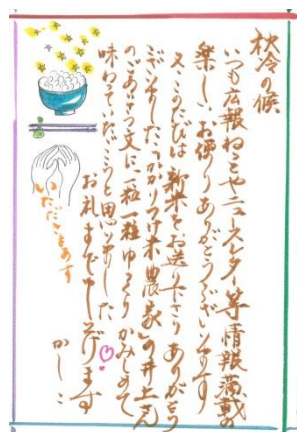 秋冷の候
いつも広報ねっとやニュースレター等情報満載の
楽しいお便りありがとうございます
又、このたびは新米をお送り下さりありがとう
ございました。「かかりつけ米農家」の井上さん
のごあいさつ文に一粒一粒ゆっくりかみしめて
味わっていただこうと思いました
お礼まで申し上げます
かしこ
いただきます